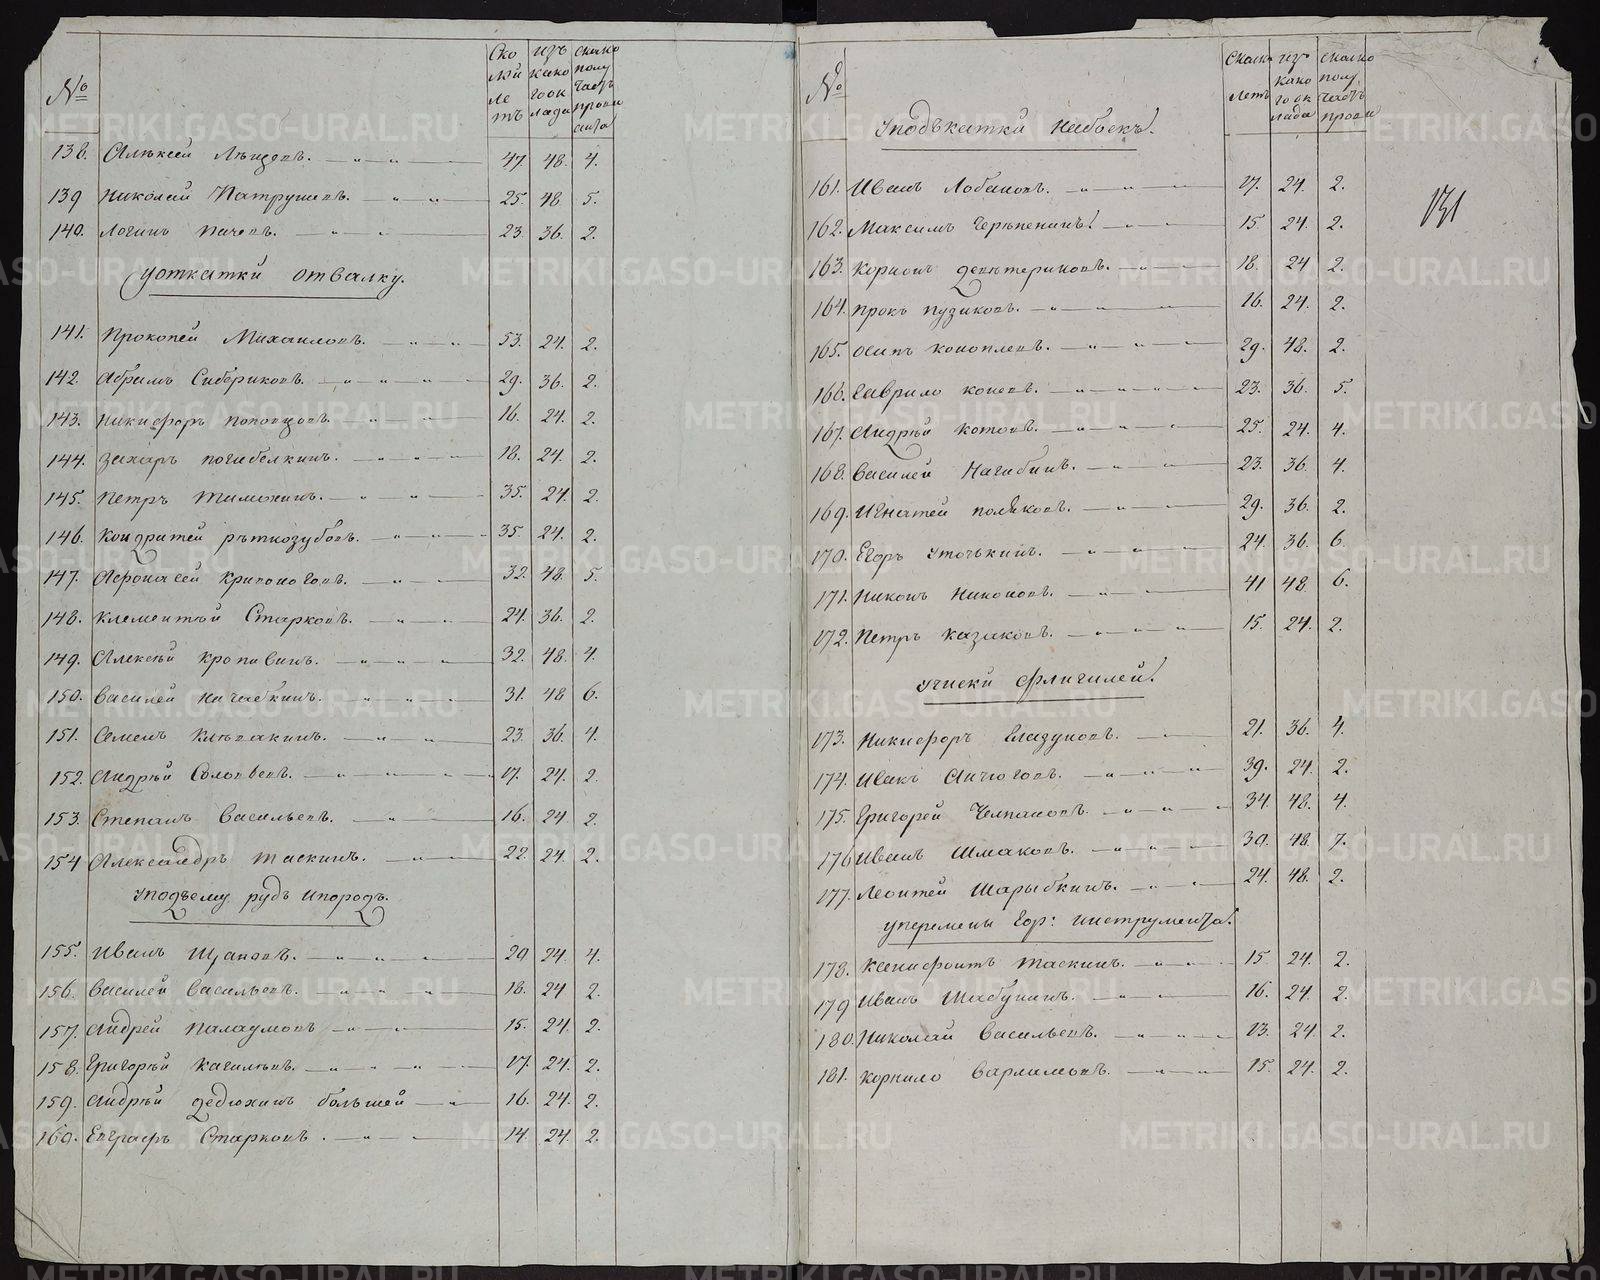 №
Ско лки ле тъ
изъ како го ок лада
сколко полу чаетъ прови анта
138. Алѣксѣй 47. 48. 4.
139 Николай Патрушевъ. 25. 48 5.
140. Логинъ Пачевъ. 23. 36. 2.
уоткатки отвалку.
141. Прокопей Михаиловъ. 53. 24. 2.
142. Абрамъ Сибериковъ. 29. 36. 2.
143. Никифоръ Попопцовъ. 16. 24. 2.
144. Захаръ погибелкинъ. 18. 24. 2.
145. Петръ Тимохинъ. 35. 24 2.
146. Кондратей рѣткозубовъ. 35. 24. 2.
147. Афонасей Кривоноговъ. 32. 48. 5.
148. Клементѣй Старковъ. 24. 36. 2.
149. Алексѣй Кропивинъ. 32. 48. 4.
150. Василей 31. 48 6.
151. Семенъ Клѣпакинъ. 23. 36. 4.
152. Андрѣй Соловьевъ. 17. 24. 2.
153. Степанъ Васильевъ. 16. 24 2.
154 Александръ Таскинъ. 22. 24. 2.
уподъему рудъ ипородъ.
155. Иванъ Щаповъ. 20 24. 4.
156. Василей Васильевъ. 18. 24 2.
157. Андрей Палаумовъ 15. 24. 2.
158. Григорѣй 17. 24. 2.
159. Андрѣй Дедюхинъ большей 16. 24. 2.
160. Евграфъ Старковъ. 14. 24. 2.
№
Сколко летъ
изъ како го ок лада
сколко полу чаетъ прови
уподъкатки набоекъ.
161. Иванъ Лобановъ. 17. 24. 2.
162. Максимъ Черѣпенинъ. 15. 24. 2.
131
163. Корнилъ девятериковъ. 18. 24 2.
164. Прокъ пузиковъ. 16. 24. 2.
165. осипъ коноплевъ. 29. 48. 2.
166. Гаврило коневъ. 23. 36. 5.
167. Андрѣй котовъ. 25. 24. 4.
168. Василей Нагибинъ. 23. 36. 4.
169. Игнатей поляковъ. 29. 36. 2.
170. Егоръ Уточкинъ. 24. 36. 6.
171. Никонъ Никоновъ. 41 48 6.
172. Петръ казаковъ. 15. 24. 2.
учиски флигилей.
173. Никифоръ Глазуновъ. 21. 36. 4.
174. Иванъ Анчюговъ. 39. 24. 2.
175. Григорей Челпановъ. 34. 48. 4.
176 Иванъ Шмаковъ. 30. 48. 7.
177. Леонтей Шарыбкинъ. 24. 48. 2.
уперемены Гор: инструмента.
178. Ксенифонтъ Таскинъ. 15 24. 2.
179 Иванъ Шабунинъ. 16. 24. 2.
180. Николай Васильевъ. 13. 24 2.
181. Корнило Варламовъ. 15. 24. 2.
METRIKI.GASO-URAL.RU